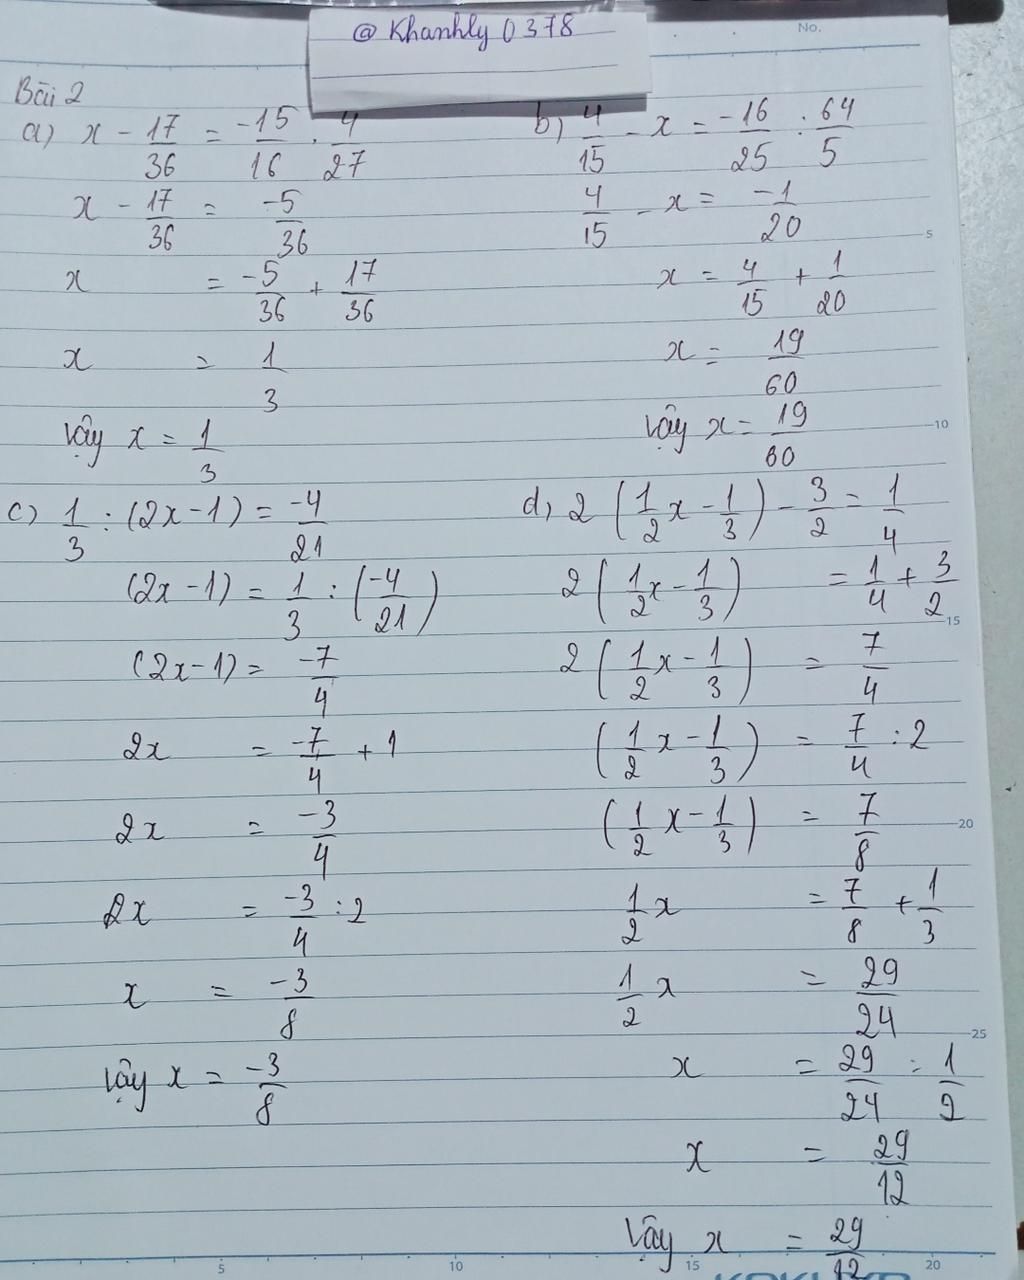 @ Khanhly 0378
No.
Bài 2
a) x - 17/36 = -15/16 . 4/27
x - 17/36 = -5/36
x = -5/36 + 17/36
x = 1/3
Vậy x = 1/3
b) 4/15 - x = -16/25 : 64/5
4/15 - x = -1/20
x = 4/15 + 1/20
x = 19/60
Vậy x = 19/60
c) 1/3 : (2x - 1) = -4/21
(2x - 1) = 1/3 : (-4/21)
(2x - 1) = -7/4
2x = -7/4 + 1
2x = -3/4
2x = -3/4 : 2
x = -3/8
Vậy x = -3/8
d) 2 (1/2 x - 1/3) - 3/2 = 1/4
2 (1/2 x - 1/3) = 1/4 + 3/2
2 (1/2 x - 1/3) = 7/4
(1/2 x - 1/3) = 7/4 : 2
(1/2 x - 1/3) = 7/8
1/2 x = 7/8 + 1/3
1/2 x = 29/24
x = 29/24 : 1/2
x = 29/12
Vậy x = 29/12
5
10
15
20
25
5 10 15 20